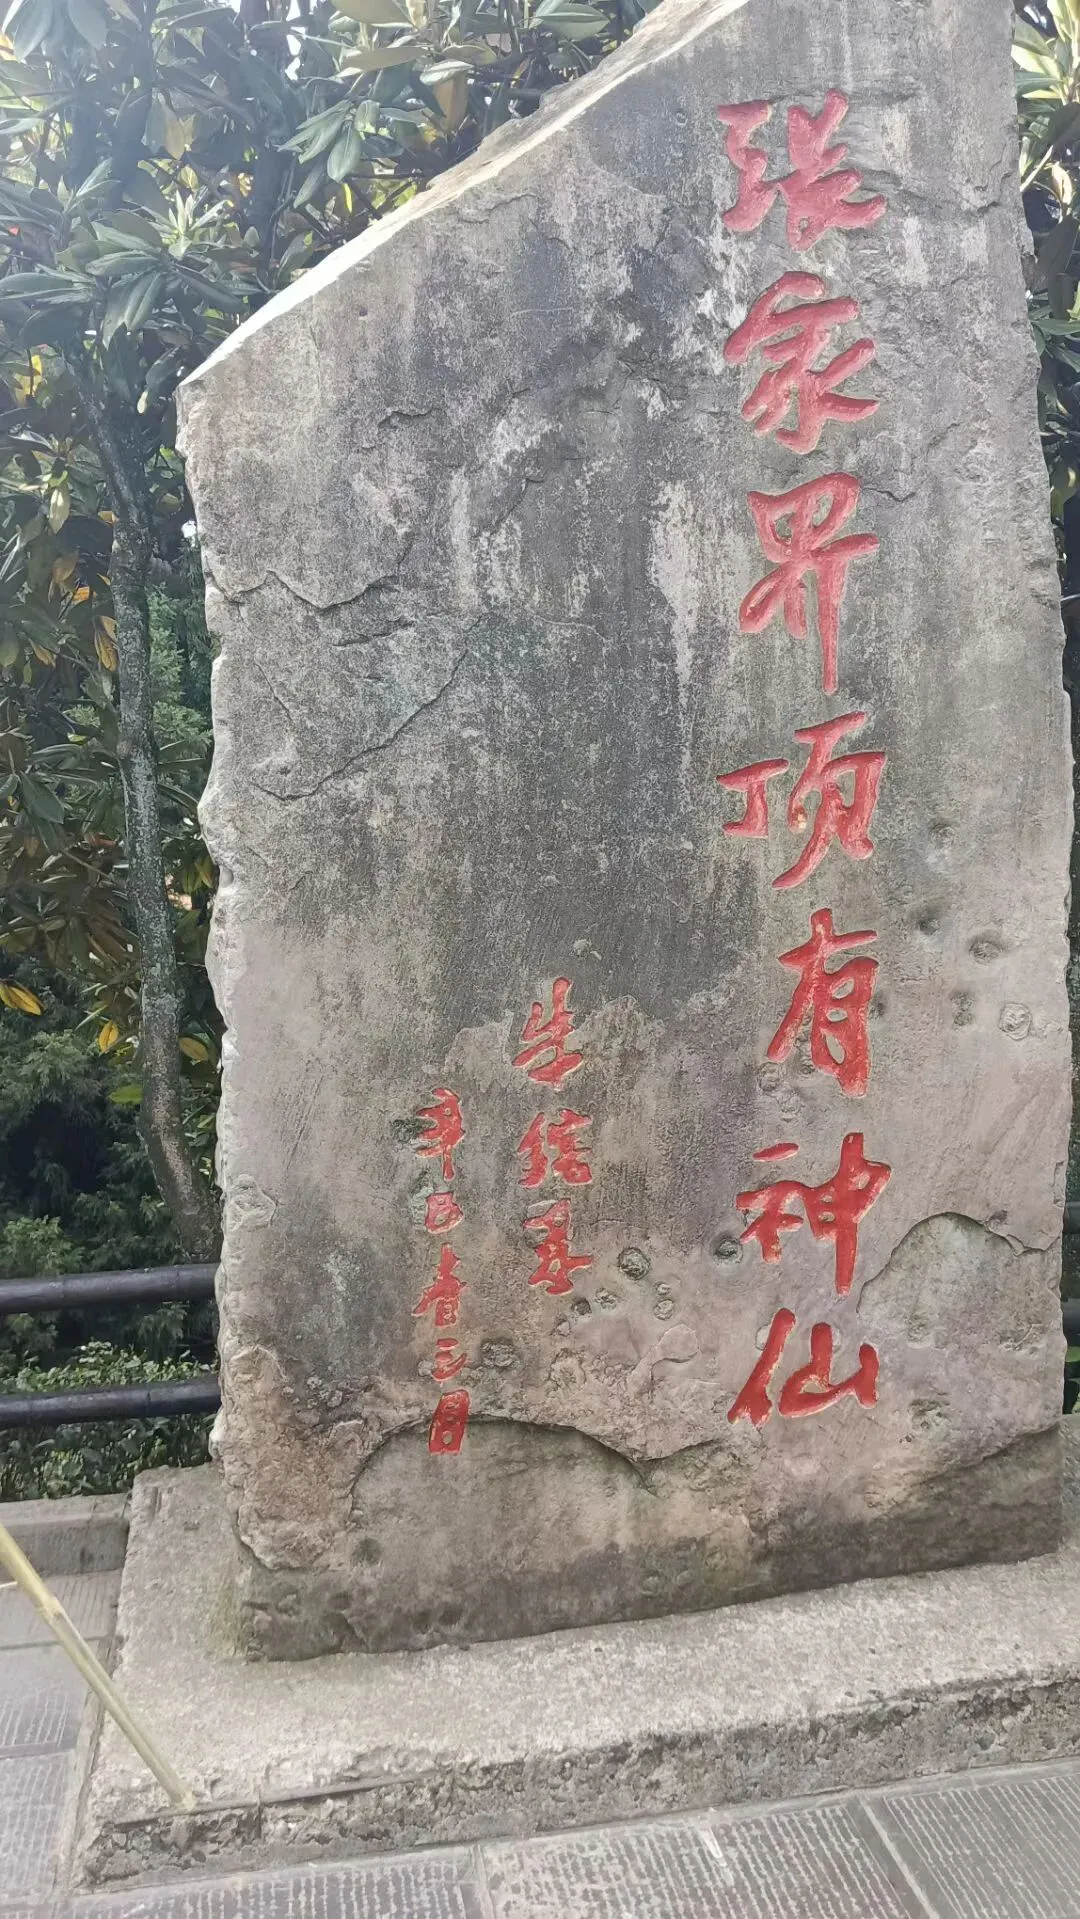 张家界顶有神仙
朱镕基
辛巳春三月